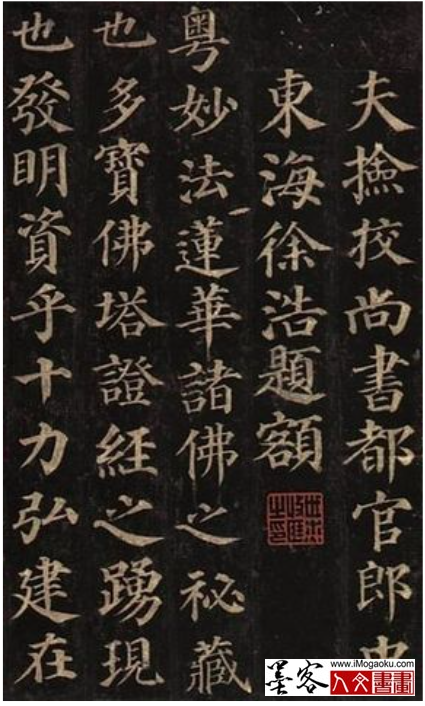 夫撿挍尚書都官郎中
東海徐浩題額
粤妙法蓮華諸佛之祕藏
也多寶佛塔證経之踴現
也發明資乎十力弘建在
www.iMogaoku.com
墨客人文書畫